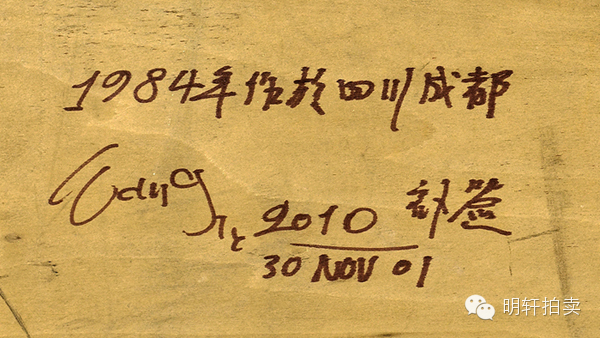 1984年作於四川成都
2010 补签
30 NOV 01
明轩拍卖